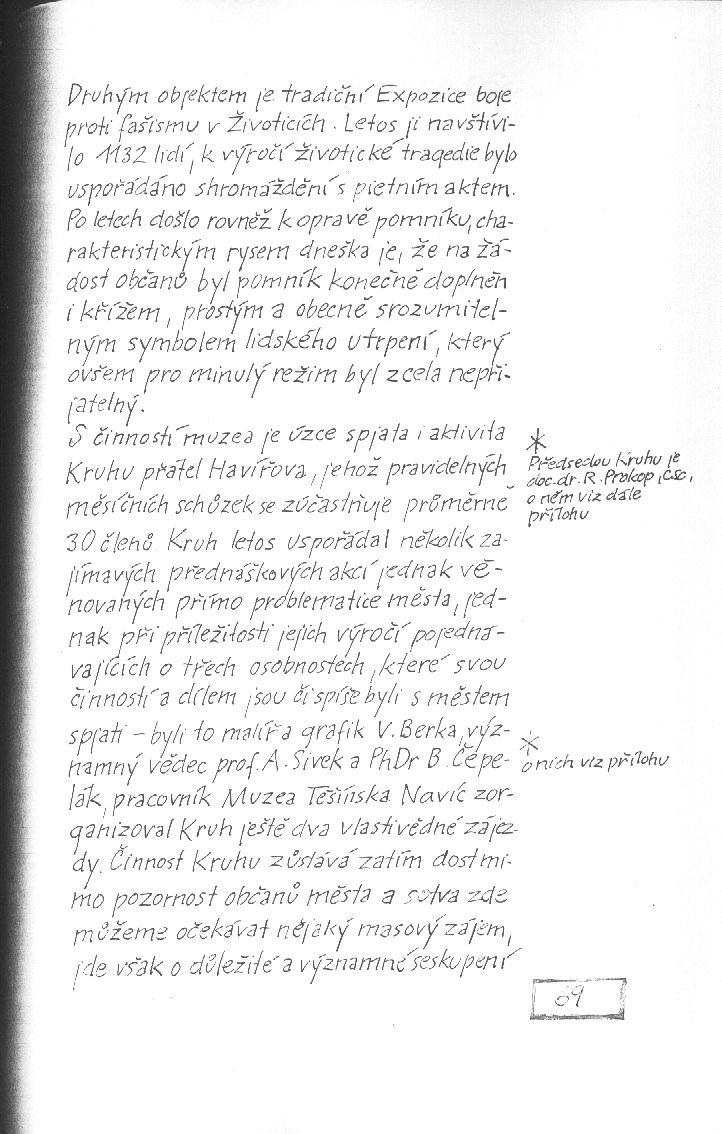 Druhým objektem je tradiční Expozice boje
proti fašismu v Životicích. Letos ji navštívi-
lo 1132 lidí, k výročí životické tragedie bylo
uspořádáno shromáždění s pietním aktem.
Po letech došlo rovněž k opravě pomníku, cha-
rakteristickým rysem dneška je, že na žá-
dost občanů byl pomník konečně doplněn
i křížem, prostým a obecně srozumitel-
ným symbolem lidského utrpení, který
ovšem pro minulý režim byl zcela nepři-
jatelný.
S činností muzea je úzce spjata i aktivita
Kruhu přátel Havířova, jehož pravidelných
měsíčních schůzek se zúčastňuje průměrně
30 členů. Kruh letos uspořádal několik za-
jímavých přednáškových akcí jednak vě-
novaných přímo problematice města, jed-
nak při příležitosti jejich výročí pojedná-
vajících o třech osobnostech, které svou
činností a dílem jsou či spíše byli s městem
spjati – byli to malíř a grafik V. Berka, výz-
namný vědec prof. A. Sivek a PhDr B. Čepe-
lák, pracovník Muzea Těšínska. Navíc zor-
ganizoval Kruh ještě dva vlastivědné zájez-
dy. Činnost Kruhu zůstává zatím dost mi-
mo pozornost občanů města a sotva zde
můžeme očekávat nějaký masový zájem,
jde však o důležité a významné seskupení
*
Předsedou Kruhu je
doc. dr. R. Prokop, CSc,
o něm viz dále
přílohu
*
o nich viz přílohu
69